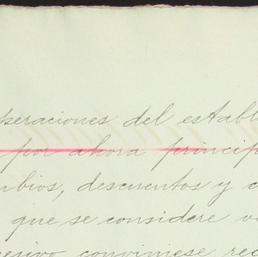 peraciones del establ
por ahora princip
mbios, descuentos y c
que se considere v
cesivo conviniese rec